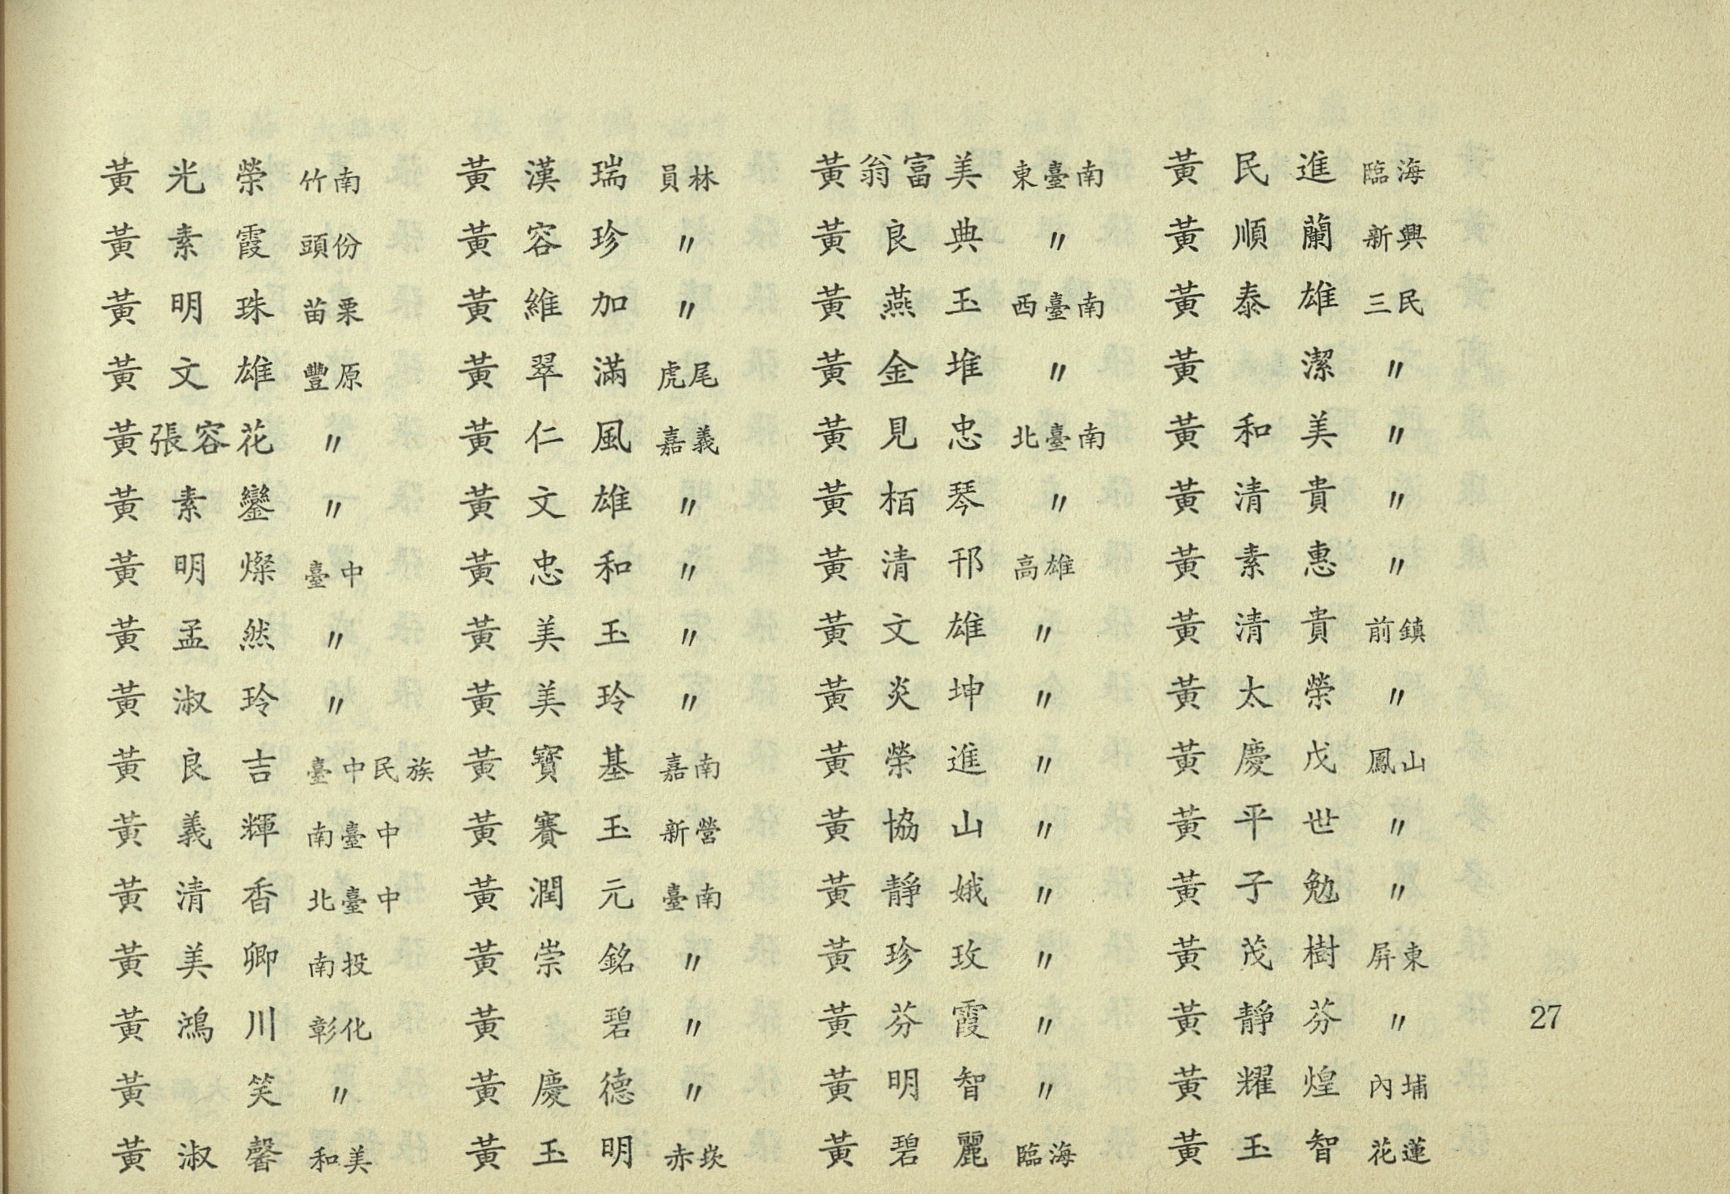 黃光榮 竹南
黃素霞 頭份
黃明珠 苗栗
黃文雄 豐原
黃張容花 〃
黃素鑾 〃
黃明燦 臺中
黃孟然 〃
黃淑玲 〃
黃良吉 臺中民族
黃義輝 南臺中
黃清香 北臺中
黃美卿 南投
黃鴻川 彰化
黃笑 〃
黃淑馨 和美
黃漢瑞 員林
黃容珍 〃
黃維加 〃
黃翠滿 虎尾
黃仁風 嘉義
黃文雄 〃
黃忠和 〃
黃美玉 〃
黃美玲 〃
黃寶基 嘉南
黃賽玉 新營
黃潤元 臺南
黃崇銘 〃
黃碧 〃
黃慶德 〃
黃玉明 赤崁
黃翁富美 東臺南
黃良典 〃
黃燕玉 西臺南
黃金堆 〃
黃見忠 北臺南
黃栢琴 〃
黃清邗 高雄
黃文雄 〃
黃炎坤 〃
黃榮進 〃
黃協山 〃
黃靜娥 〃
黃珍玫 〃
黃芬霞 〃
黃明智 〃
黃碧麗 臨海
黃民進 臨海
黃順蘭 新興
黃泰雄 三民
黃潔 〃
黃和美 〃
黃清貴 〃
黃素惠 〃
黃清貴 前鎮
黃太榮 〃
黃慶戊 鳳山
黃平世 〃
黃子勉 〃
黃茂樹 屏東
黃靜芬 〃
黃耀煌 內埔
黃玉智 花蓮
27